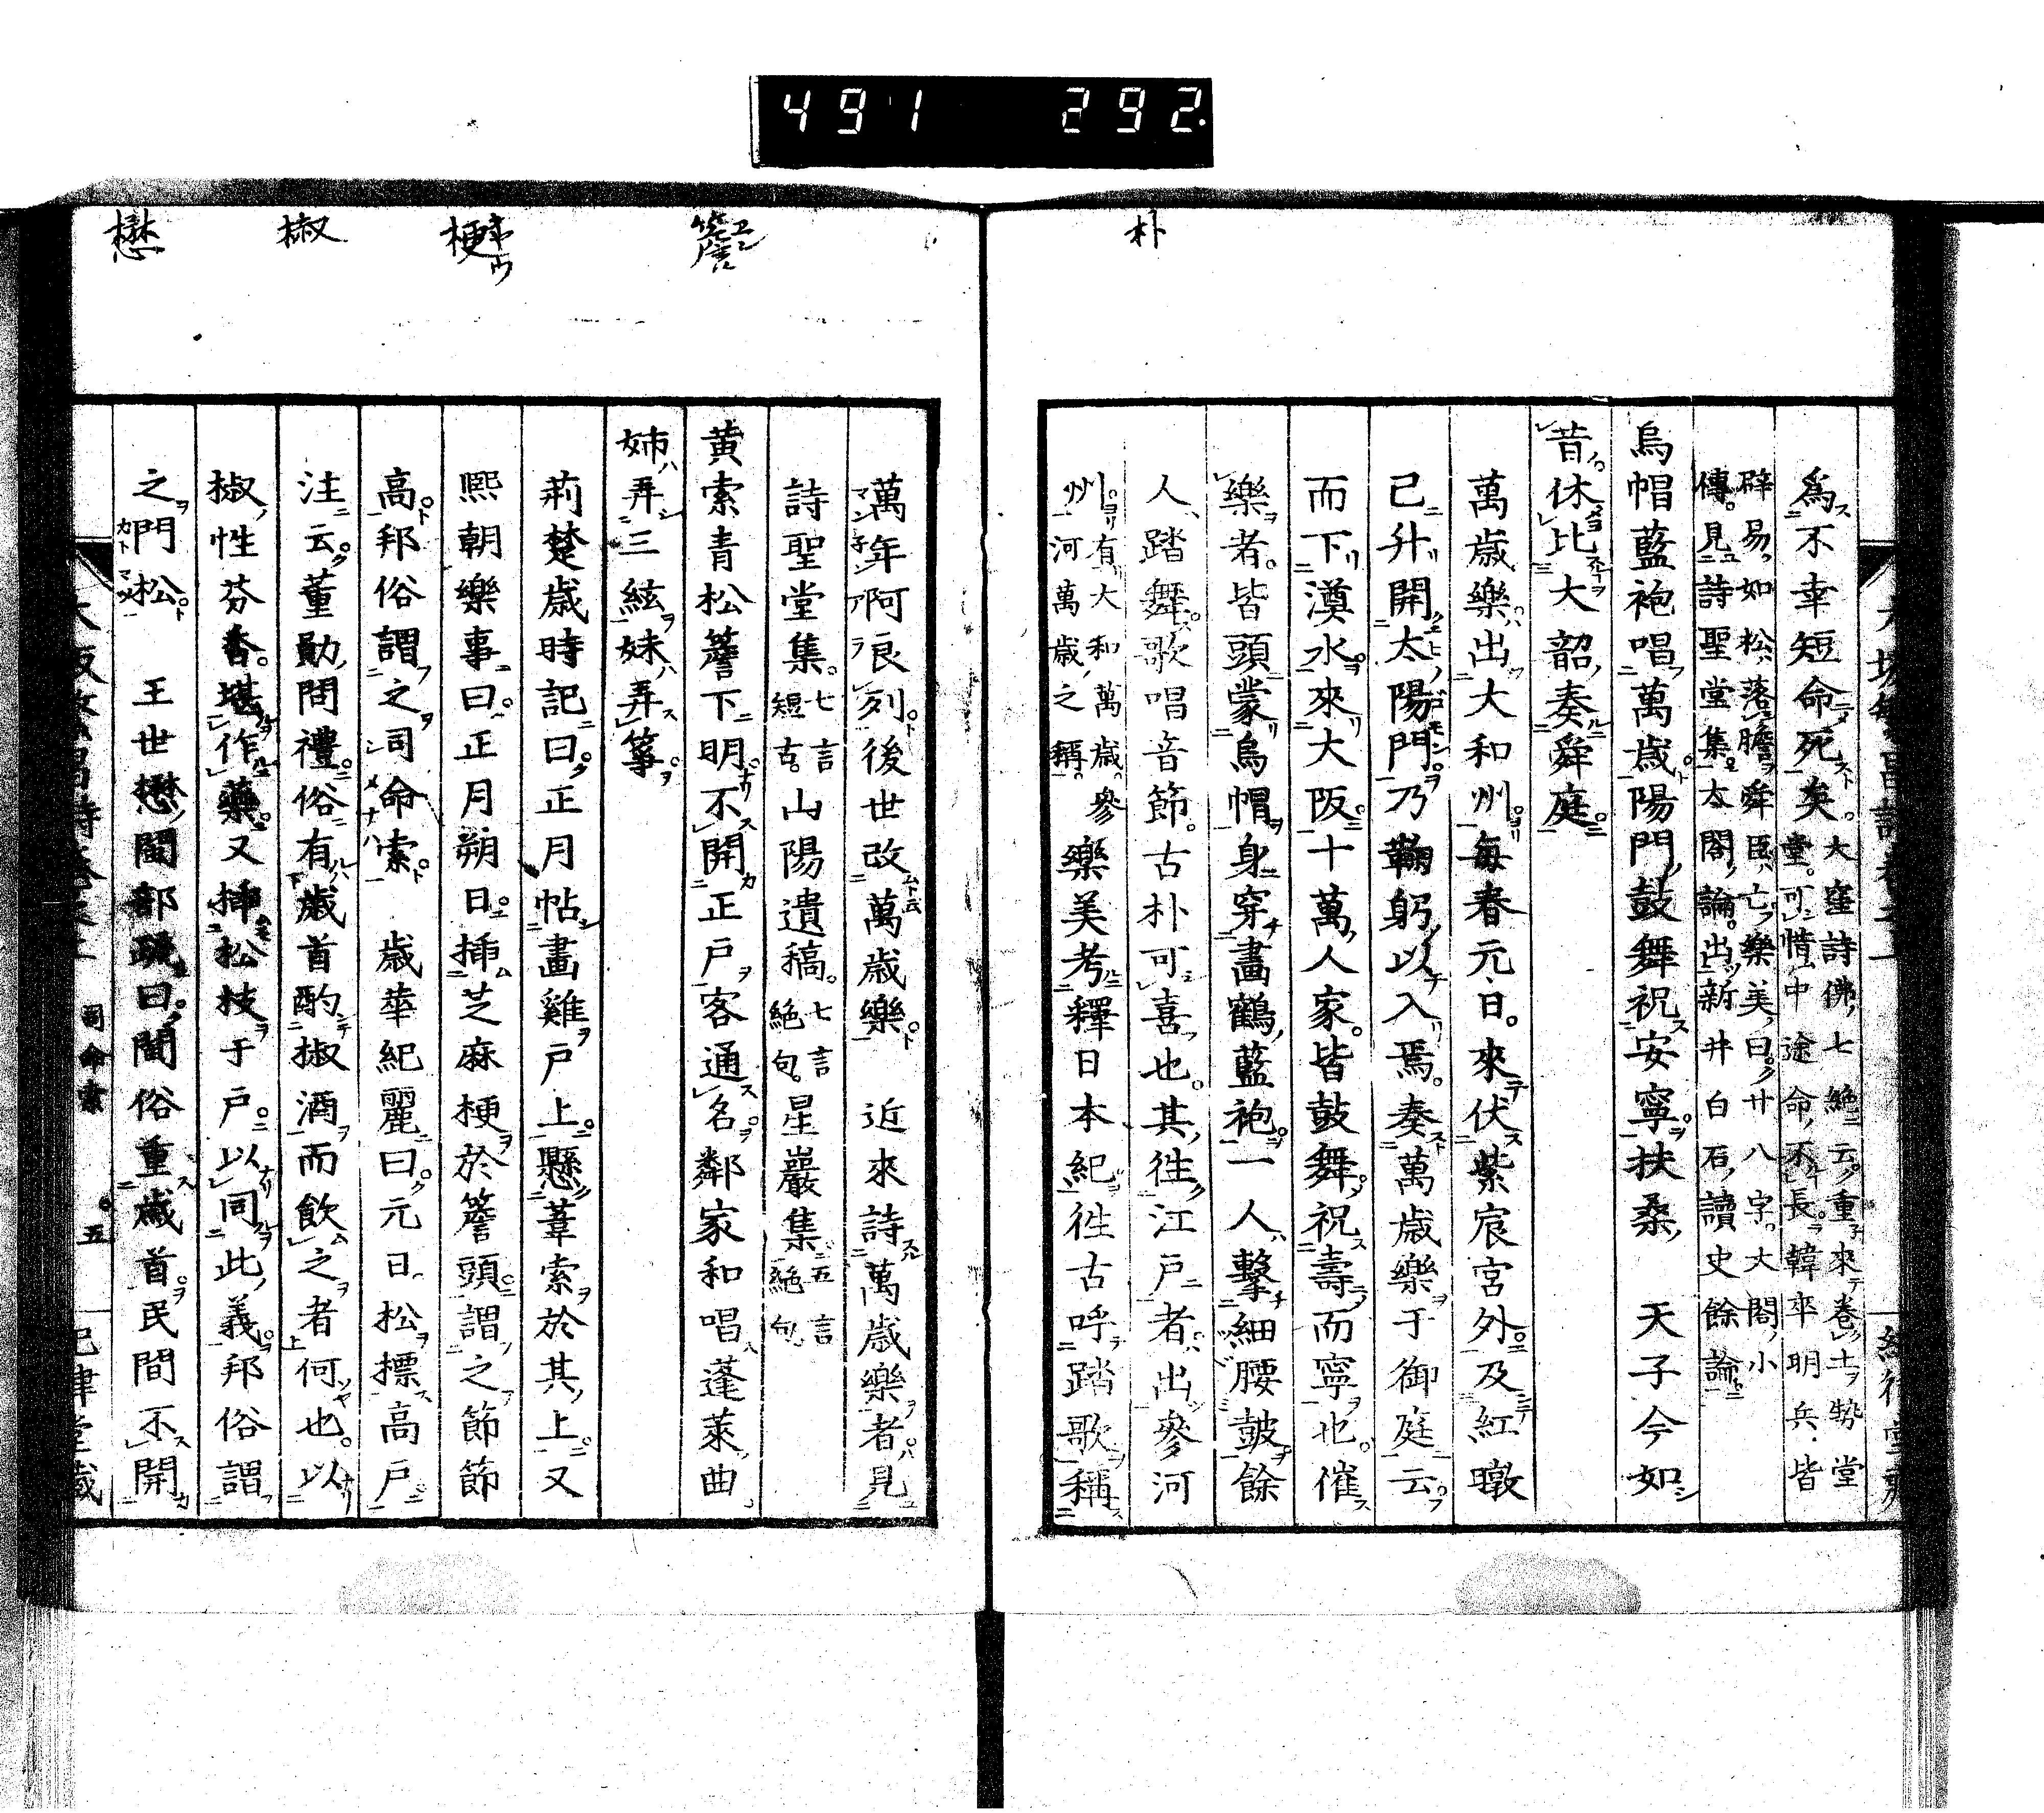 491 292
朴
爲不幸短命死矣。大窪詩佛七絶云重來卷土勢堂
堂。可惜中途命不長韓卒明兵皆
辟易如松落膽舜臣亡樂美曰廿八字。大閤小
傳。見詩聖堂集。太閤論。出新井白石讀史餘論
烏帽藍袍唱萬歳陽門鼓舞祝安寧扶桑 天子今如
昔。休比大韶奏舜庭
萬歳樂出大和州每春元日。來伏紫宸宮外及紅暾
已升開太陽門乃鞠躬以入焉。奏萬歳樂于御庭云
而下澳水來大阪十萬人家。皆鼓舞祝壽而寧也。催
樂者。皆頭蒙烏帽身穿畫鶴藍袍一人擊細腰鼓餘
人踏舞歌唱音節。古朴可喜也。其徃江戸者出參河
州有大和萬歳。參
河萬歳之稱。樂美考釋日本紀徃古呼踏歌稱
簷
梗
椒
懋
萬年阿良列後世改萬歳樂 近來詩萬歳樂者見
詩聖堂集。七言短古。山陽遺稿。七言絶句。星巖集五言絶句
黄索青松簷下明不開正戸客通名鄰家和唱蓬萊曲
姉弄三絃妹弄箏
荊楚歳時記曰正月帖畫雞戸上懸葦索於其上又
熙朝樂事曰正月朔日插芝麻梗於簷頭謂之節節
高邦俗謂之司命索 歳華紀麗曰元日松標高戸
注云董勛問禮俗有歳首酌椒酒而飲之者何也。以
椒性芬香。堪作藥又插松枝于戸以同此義邦俗謂
之門松 王世懋閩部疏曰閩俗重歳首民間不開
司命索 五